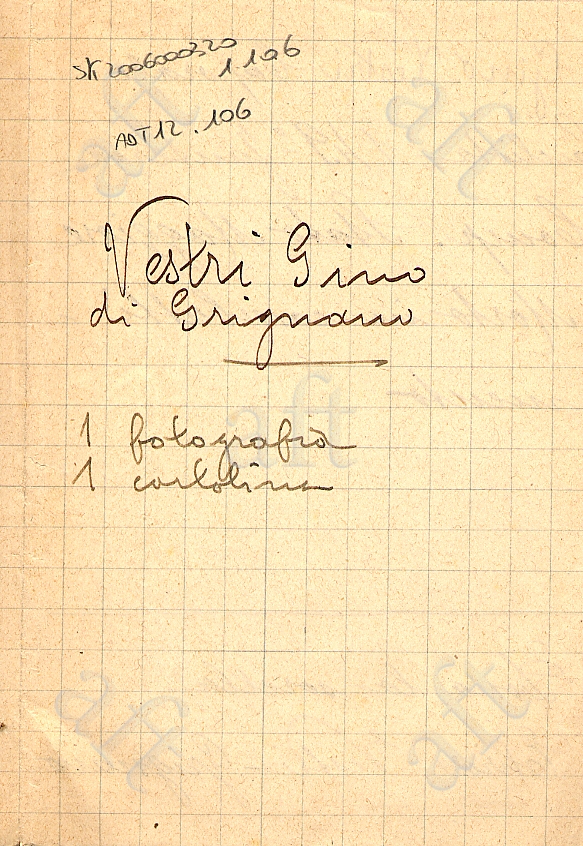 SK2006000320
1106
ADT12.106
Vestri Gino
di Grignano
1 fotografia
1 cartolina
aft
aft
aft
aft
aft